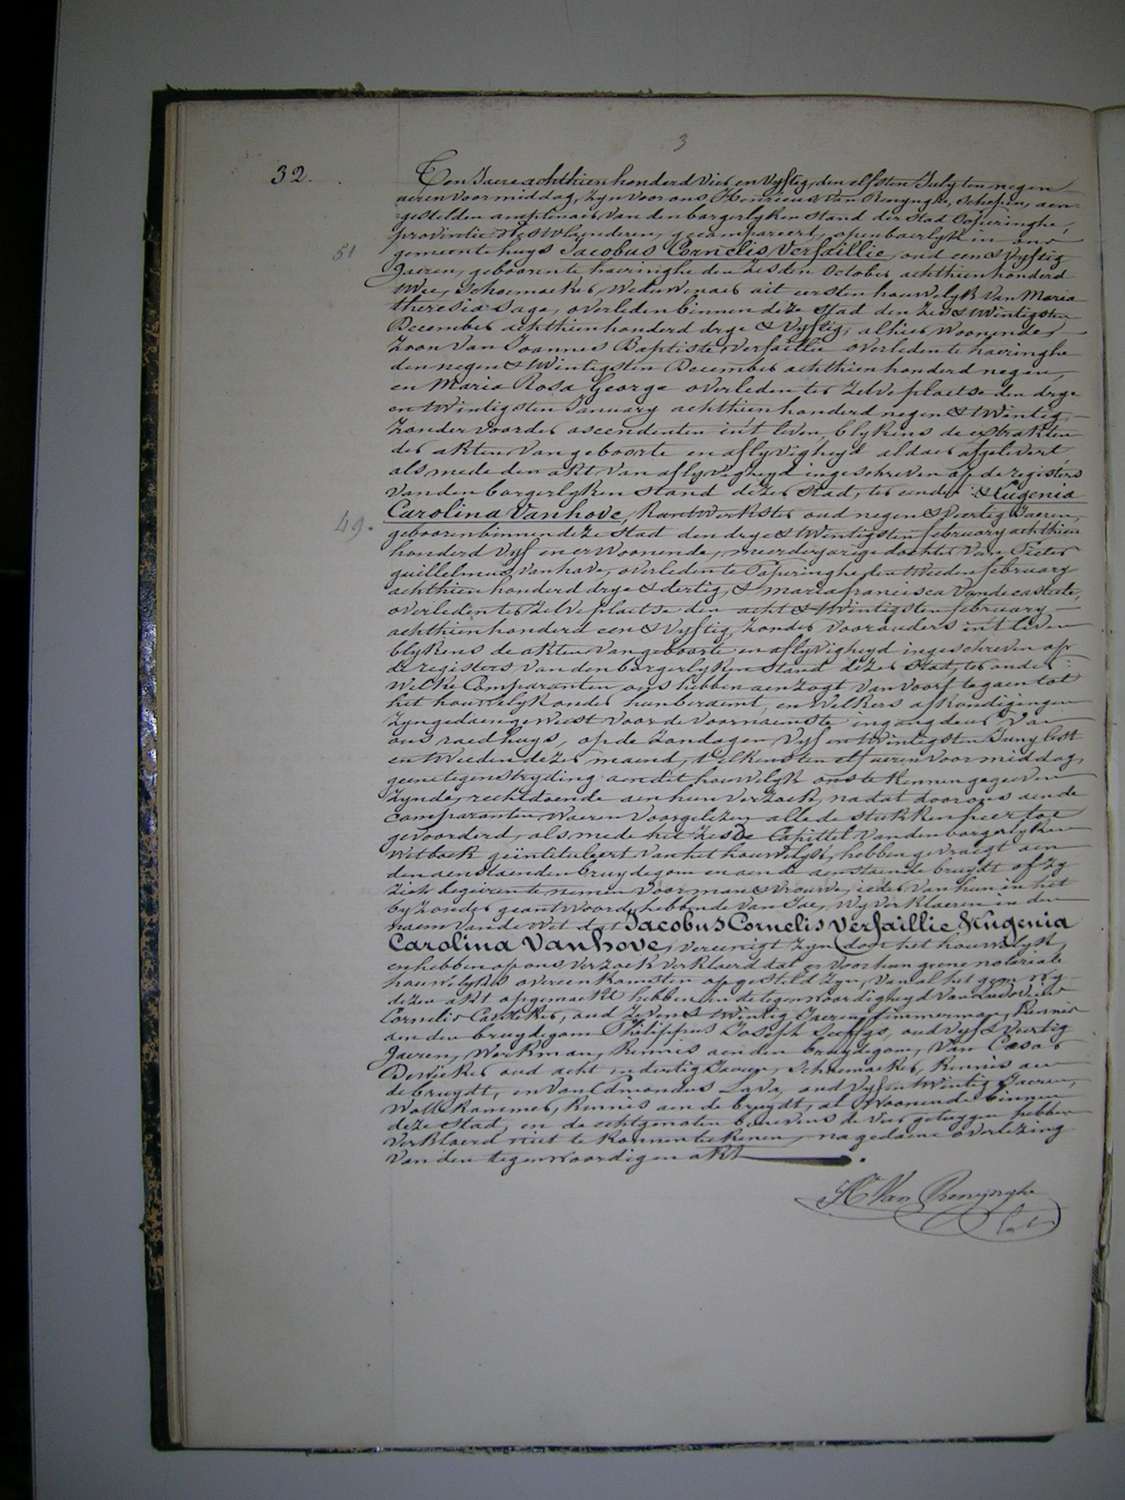 3
32.
Ten Jaere achthien honderd vier en vyftig, den elfsten July ten negen
ueren voormiddag, zyn voor ons Henricus Van Renynghe, Schepen, aen-
gestelden amptenaer van den borgerlyken stand der stad Poperinghe,
provintie Westvlaenderen, gecompareert, openbaerlyk in ons
51
gemeentehuys Jacobus Cornelis Verfaillie, oud een & vyftig
Jaeren, geboren te haeringhe den October achthien honderd
twee, Schoemaeker, Weduwenaer uit eersten houwelyk van Maria
theresia Sage, overleden binnen deze stad den zes & twintigsten
December achthien honderd drye & vyftig, alhier woonende,
zoon van Joannes Baptiste Verfaillie overleden te haeringhe
den negen & twintigsten December achthien honderd negen,
en Maria Rosa George overleden ter zelve plaetse den drye
en twintigsten January achthien honderd negen & twintig,
zonder voorder ascendenten in't leven, blykens de extrakten
der akten van geboorte en aflyvigheyd aldaer afgelevert,
alsmede den akt van aflyvigheyd ingeschreven op de registers
van den borgerlyken stand dezer stad, ter eender: & Eugenia
49.
Carolina Vanhove, Kantwerkster oud negen & veertig Jaeren,
geboren binnen deze stad den drye & twintigsten february achthien
honderd vyf en er woonende, meerderjarige dochter van Pieter
guillelmus Vanhove, overleden te Poperinghe, den tweeden february
achthien honderd drye & dertig, & maria francisca Vandecasteele,
overleden ter zelve plaetse den acht & twintigsten february
achthien honderd een & vyftig, zonder voorouders in't leven
blykens de akten van geboorte en aflyvigheyd ingeschreven op
de registers van den borgerlyken stand dezer stad, ter ander:
Welke Comparanten ons hebben aenzogt van voorts te gaen tot
het houwelyk onder hun beraemt, en welkers afkondigingen
zyn gedaen geweest voor de voornaemste ingangdeur van
ons raedhuys, op de zondagen vyf en twintigsten Juny lest
en tweeden dezer maend, telkens ten elf ueren voormiddag,
geene tegenstryding aen dit houwelyk ons te kennen gegeven
zynde, rechtdoende aen hun verzoek, nadat door ons aen de
comparanten waeren voorgelezen alle de stukken hier toe
gevoorderd, alsmede het zesde Capittel van den borgerlyken
wetboek geïntituleert van het houwelyk, hebben gevraegt aen
den aenstaenden bruydegom en aen de aenstaende bruydt of zy
zich begeiren te nemen voor man & vrouwe, ieder van hun in het
byzonder geantwoord hebbende van Jae, Wy verklaeren in den
naem van de Wet dat Jacobus Cornelis Verfaillie & Eugenia
Carolina Vanhove, vereenigt zyn door het houwelyk,
en hebben op ons verzoek verklaerd dat er voor hun geene notariale
houwelyks overeenkomsten opgesteld zyn, van al het geen wy
dezen akt opgemaekt hebben in de tegenwoordigheyd van Ludovicus
Cornelis oud zeven & twintig Jaeren, timmerman, kennis
aen den bruydegom Philippus Joseph oud vyf & veertig
Jaeren, Werkman, kennis aen den bruydegom, van Cesar
Dewicker oud acht en dertig Jaeren, Schoemaeker, kennis aen
de bruydt, en van Edmondus Lava, oud vyf en twintig Jaeren,
Wollekammer, kennis aen de bruydt, al woonende binnen
deze stad, en de echtgenoten benevens de vier getuygen hebben
verklaerd niet te konnen teekenen, na gedaene overlezing
van den tegenwoordigen akt.
H. Van Renynghe